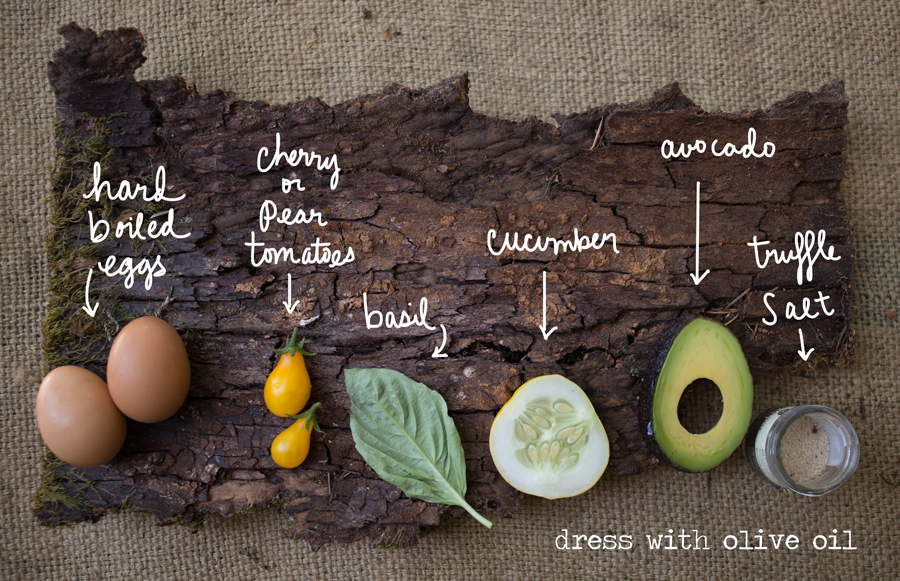 hard
boiled
eggs
cherry
or
Pear
tomatoes
basil
cucumber
avocado
truffle
Salt
dress with olive oil